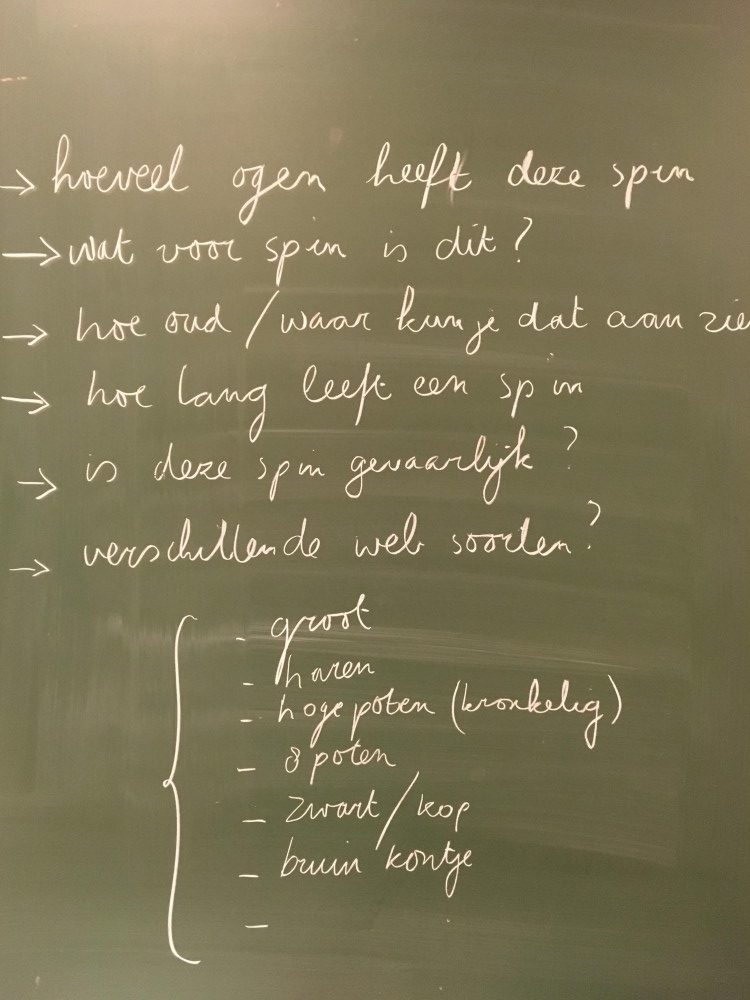 → hoeveel ogen heeft deze spin
→ wat voor spin is dit?
→ hoe oud / waar kun je dat aan zie
→ hoe lang leeft een spin
→ is deze spin gevaarlijk?
→ verschillende web soorten?
- groot
- haren
- hoge poten (kronkelig)
- 8 poten
- zwart / kop
- bruin kontje
-